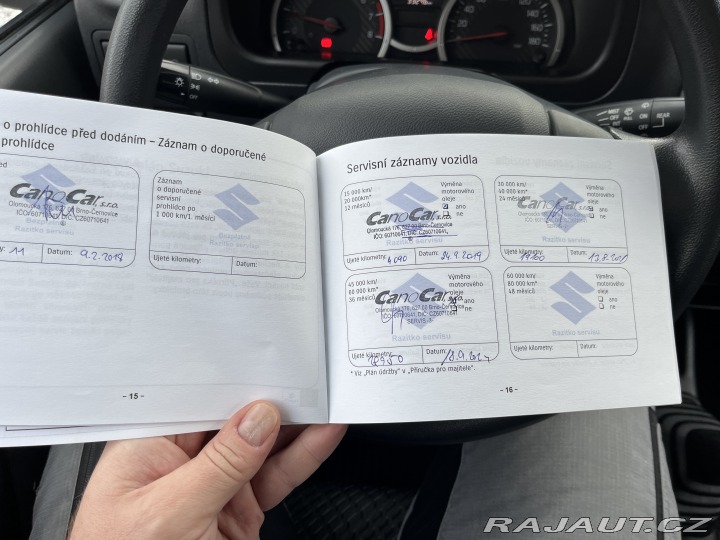 o prohlídce před dodáním – Záznam o doporučené
prohlídce
CanoCar s.r.o.
Olomoucká 176, 627 00 Brno-Černovice
IČO: 60710641, DIČ: CZ60710641
Razítko servisu
11
Datum: 9.2.2018
Záznam
o doporučené
servisní
prohlídce po
1 000 km/1. měsíci
Razítko servisu
Ujeté kilometry:
Datum:
- 15 -
Servisní záznamy vozidla
15 000 km/
20 000km*
12 měsíců
Výměna
motorového
oleje
ano
ne
CanoCar s.r.o.
Olomoucká 176, 627 00 Brno-Černovice
IČO: 60710641, DIČ: CZ60710641
Razítko servisu
Ujeté kilometry: 4090
Datum: 24.9.2019
30 000 km/
40 000 km*
24 měsíců
Výměna
motorového
oleje
ano
ne
CanoCar s.r.o.
Olomoucká 176, 627 00 Brno-Černovice
IČO: 60710641, DIČ: CZ60710641
Razítko servisu
Ujeté kilometry:
Datum:
45 000 km/
60 000 km*
36 měsíců
Výměna
motorového
oleje
ano
ne
CanoCar s.r.o.
Olomoucká 176, 627 00 Brno-Černovice
IČO: 60710641, DIČ: CZ60710641
SERVIS
Razítko servisu
Ujeté kilometry:
Datum:
60 000 km/
80 000 km*
48 měsíců
Výměna
motorového
oleje
ano
ne
Razítko servisu
Ujeté kilometry:
Datum:
* Viz „Plán údržby" v „Příručka pro majitele".
- 16 -
OFF
MIST
OFF
INT
REAR
RAJAUT.CZ